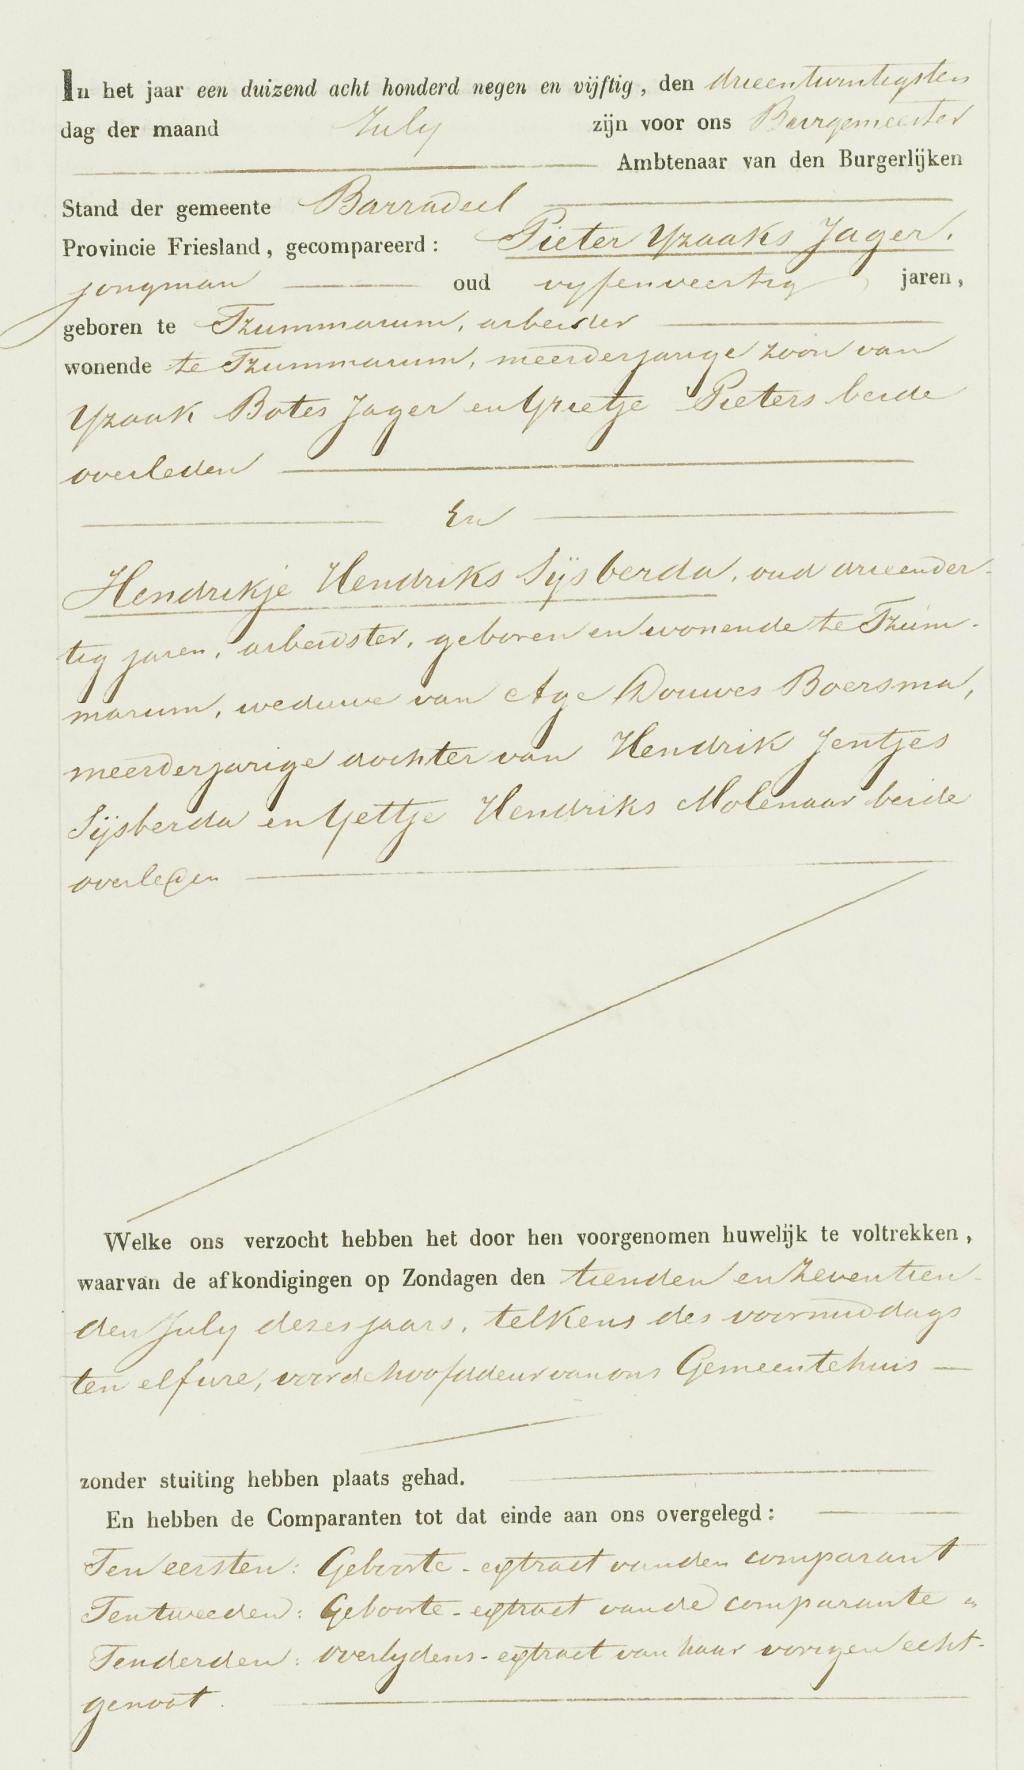 In het jaar een duizend acht honderd negen en vijftig, den drieentwintigsten
dag der maand July zijn voor ons Burgemeester
Ambtenaar van den Burgerlijken
Stand der gemeente Barradeel
Provincie Friesland, gecompareerd: Pieter Yzaaks Jager.
jongman oud vyfenveertig jaren,
geboren te Tzummarum, arbeider
wonende te Tzummarum, meerderjarige zoon van
Yzaak Botes Jager en Grietje Pieters beide
overleden
En
Hendrikje Hendriks Sijsberda, oud drieender-
tig jaren, arbeidster, geboren en wonende te Tzum-
marum, weduwe van Age Douwes Boersma,
meerderjarige dochter van Hendrik Jentjes
Sijsberda en Yettje Hendriks Molenaar beide
overleden
Welke ons verzocht hebben het door hen voorgenomen huwelijk te voltrekken,
waarvan de afkondigingen op Zondagen den tienden en zeventien-
den July dezes jaars, telkens des voormiddags
ten elf ure, voor de hoofddeur van ons Gemeentehuis
zonder stuiting hebben plaats gehad.
En hebben de Comparanten tot dat einde aan ons overgelegd:
Ten eersten: Geboorte-extract van den comparant
Ten tweeden: Geboorte-extract van de comparante
Ten derden: overlydens-extract van haar vorigen echt-
genoot.